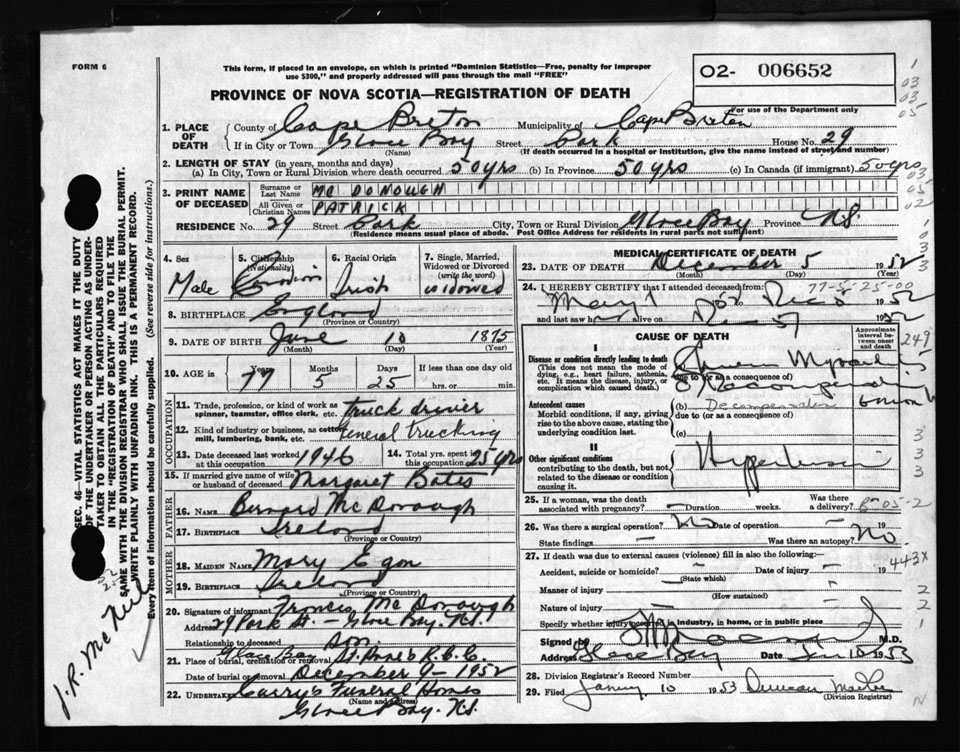 FORM 6
This form, if placed in an envelope, on which is printed "Dominion Statistics—Free, penalty for improper
use $300," and properly addressed will pass through the mail "FREE"
02- 006652
For use of the Department only
PROVINCE OF NOVA SCOTIA—REGISTRATION OF DEATH
1. PLACE OF DEATH
County of Cape Breton Municipality of Cape Breton
If in City or Town Glace Bay Street Park House No. 29
(Name) (If death occurred in a hospital or institution, give the name instead of street and number)
2. LENGTH OF STAY (in years, months and days)
(a) In City, Town or Rural Division where death occurred 50 yrs (b) In Province 50 yrs (c) In Canada (if immigrant) 50 yrs
3. PRINT NAME OF DECEASED
Surname or Last Name MC DONOUGH
All Given or Christian Names PATRICK
RESIDENCE No. 29 Street Park City, Town or Rural Division Glace Bay Province N.S.
(Residence means usual place of abode. Post Office Address for residents in rural parts not sufficient)
4. Sex Male
5. Citizenship (Nationality) Canadian
6. Racial Origin Irish
7. Single, Married, Widowed or Divorced (write the word) widowed
8. BIRTHPLACE England
(Province or Country)
9. DATE OF BIRTH June 10 1875
(Month) (Day) (Year)
10. AGE in Years 77 Months 5 Days 25 If less than one day old
hrs. or min.
OCCUPATION
11. Trade, profession, or kind of work as spinner, teamster, office clerk, etc. truck driver
12. Kind of industry or business, as cotton mill, lumbering, bank, etc. General trucking
13. Date deceased last worked at this occupation 1946
14. Total yrs. spent in this occupation 25 yrs
15. If married give name of wife or husband of deceased Margaret Bates
FATHER
16. Name Bernard McDonough
17. Birthplace Ireland
(Province or Country)
MOTHER
18. MAIDEN NAME Mary Egan
19. BIRTHPLACE Ireland
(Province or Country)
20. Signature of informant Francis McDonough
Address 29 Park St. – Glace Bay. N.S.
Relationship to deceased son
21. Place of burial, cremation or removal Glace Bay St. Anne's R.C.C.
Date of burial or removal December 9 – 1952
22. UNDERTAKER Curry's Funeral Home
(Name and Address)
Glace Bay. N.S.
MEDICAL CERTIFICATE OF DEATH
23. DATE OF DEATH December 5 1952
(Month) (Day) (Year)
77-5-25-00
24. I HEREBY CERTIFY that I attended deceased from:
May 1 1952
and last saw h alive on 1952
CAUSE OF DEATH
Approximate interval between onset and death
249
I
Disease or condition directly leading to death
(This does not mean the mode of dying, e.g., heart failure, asthenia, etc. It means the disease, injury, or complication which caused death.)
due to (or as a consequence of)
Antecedent causes
Morbid conditions, if any, giving rise to the above cause, stating the underlying condition last.
(b)
due to (or as a consequence of)
(c)
II
Other significant conditions contributing to the death, but not related to the disease or condition causing it.
Hypertension
25. If a woman, was the death associated with pregnancy? — Duration weeks. Was there a delivery?
26. Was there a surgical operation? No Date of operation — 19
State findings — Was there an autopsy? No.
27. If death was due to external causes (violence) fill in also the following:—
443X
Accident, suicide or homicide? — Date of injury — 19
(State which)
Manner of injury —
(How sustained)
Nature of injury —
Specify whether injury in industry, in home, or in public place
Signed by M.D.
Address Glace Bay Date Jan 10 1953
28. Division Registrar's Record Number
29. Filed January 10 1953 Duncan
(Division Registrar)
SEC. 46—VITAL STATISTICS ACT MAKES IT THE DUTY
OF THE UNDERTAKER OR PERSON ACTING AS UNDER-
TAKER TO OBTAIN ALL THE PARTICULARS REQUIRED
IN THE "REGISTRATION OF DEATH" AND TO FILE THE
SAME WITH THE DIVISION REGISTRAR WHO SHALL ISSUE THE BURIAL PERMIT.
WRITE PLAINLY WITH UNFADING INK. THIS IS A PERMANENT RECORD.
Every item of information should be carefully supplied. (See reverse side for instructions.)
J.R. McNeil